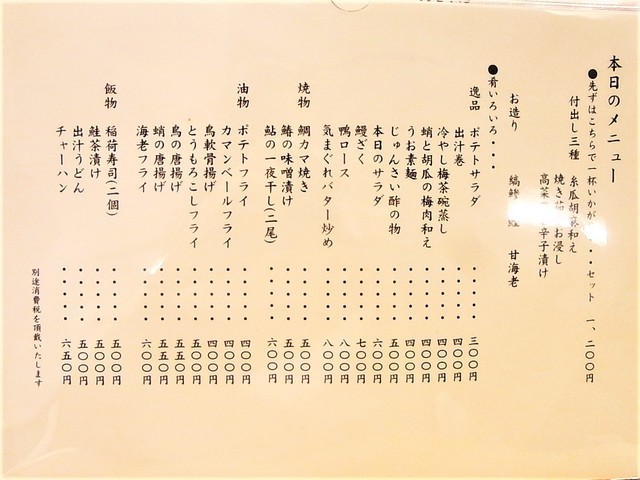 本日のメニュー
●先ずはこちらで一杯いかが・・・セット 一、二〇〇円
付出し三種 糸瓜胡麻和え
焼き お浸し
高菜 辛子漬け
お造り 縞鯵 甘海老
●肴いろいろ・・・
逸品 ポテトサラダ ・・・・・ 三〇〇円
出汁巻 ・・・・・ 四〇〇円
冷やし梅茶碗蒸し ・・・・・ 四〇〇円
蛸と胡瓜の梅肉和え ・・・・・ 四〇〇円
うお素麺 ・・・・・ 四〇〇円
じゅんさい酢の物 ・・・・・ 五〇〇円
本日のサラダ ・・・・・ 六〇〇円
鰻ざく ・・・・・ 七〇〇円
鴨ロース ・・・・・ 八〇〇円
気まぐれバター炒め ・・・・・ 八〇〇円
焼物 鯛カマ焼き ・・・・・ 五〇〇円
鰆の味噌漬け ・・・・・ 五〇〇円
鮎の一夜干し(二尾) ・・・・・ 六〇〇円
油物 ポテトフライ ・・・・・ 四〇〇円
カマンベールフライ ・・・・・ 四〇〇円
鳥軟骨揚げ ・・・・・ 四〇〇円
とうもろこしフライ ・・・・・ 五〇〇円
鳥の唐揚げ ・・・・・ 五五〇円
蛸の唐揚げ ・・・・・ 五五〇円
海老フライ ・・・・・ 六〇〇円
飯物 稲荷寿司(二個) ・・・・・ 五〇〇円
鮭茶漬け ・・・・・ 五〇〇円
出汁うどん ・・・・・ 五〇〇円
チャーハン ・・・・・ 六五〇円
別途消費税を頂戴いたします